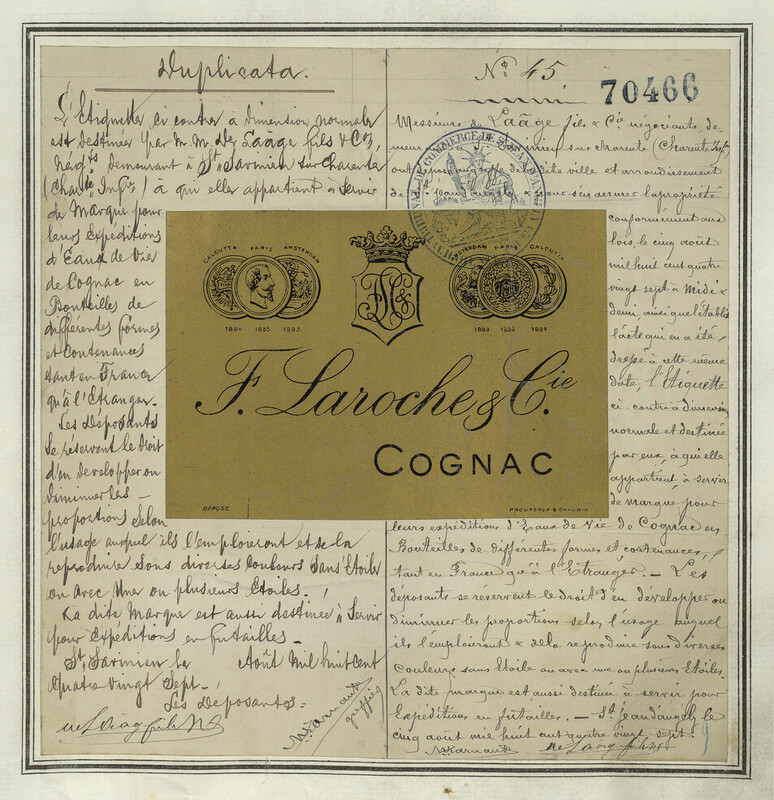 Duplicata.
L'Etiquette ci contre à dimension normale
est destinée par M.M. De Laâge fils & Cie,
Négts, demeurant à St Savinien sur Charente
(Chante Infre) à qui elle appartient à servir
de Marque pour
leurs Expéditions
d'Eaux de Vie
de Cognac en
Bouteilles de
différentes formes
et contenances
tant en France
qu'à l'Etranger.
Les déposants
se réservent le droit
d'en développer ou
diminuer les
proportions selon
l'usage auquel ils l'emploieront et de la
reproduire sous diverses couleurs sans Etoile
ou avec Une ou plusieurs Etoiles.
La dite Marque est aussi destinée à servir
pour expéditions en futailles.
St Savinien le Août Mil huit cent
quatre vingt Sept.
Les Déposants:
greffier
No 45
70466
Messieurs de Laâge fils & Cie négociants, de-
sur Charente (Charente Infre)
ville et arrondissement
de St Jean pour s'en assurer la propriété
conformément aux
lois le cinq août
mil huit cent quatre
vingt sept à Midi &
demi, ainsi que l'établit
l'acte qui en a été
dressé à cette même
date, l'Etiquette
ci contre à dimension
normale et destinée
par eux, à qui elle
appartient à servir
de marque pour
leurs expéditions d'Eaux de Vie de Cognac en
Bouteilles de différentes formes et contenances,
tant en France qu'à l'Etranger. — Les
déposants se réservent le droit d'en développer ou
diminuer les proportions selon l'usage auquel
ils l'emploiront & de la reproduire sous diverses
couleurs sans Etoile ou avec une ou plusieurs Etoiles.
La dite marque est aussi destinée à servir pour
Expéditions en futailles. — St Jean d'Angély le
cinq août mil huit cent quatre vingt sept.
TRIBUNAL DE COMMERCE DE ST JEAN D'ANGELY
CALCUTTA PARIS AMSTERDAM
1884 1855 1883
AMSTERDAM PARIS CALCUTTA
1883 1855 1884
F. Laroche & Cie
COGNAC
DÉPOSÉ
PROUTEAUX & CHAUVIN